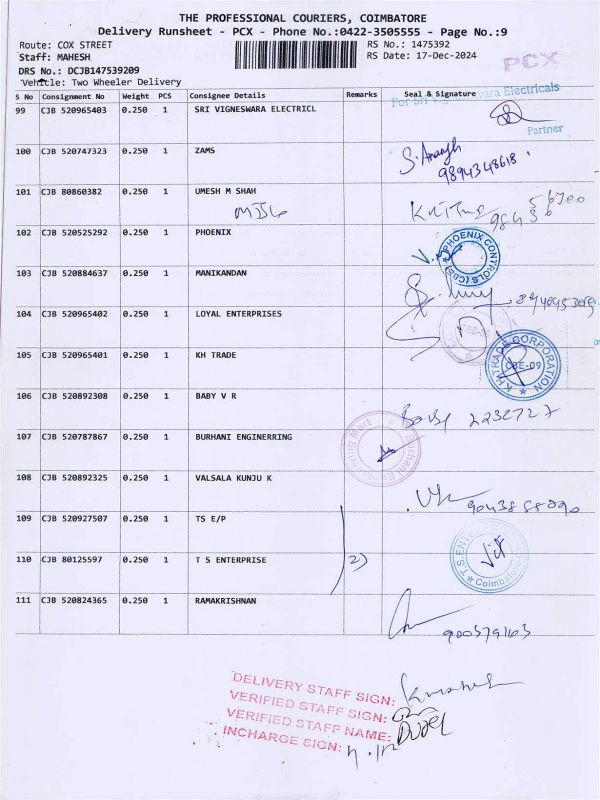 THE PROFESSIONAL COURIERS, COIMBATORE
Delivery Runsheet - PCX - Phone No.:0422-3505555 - Page No.:9
Route: COX STREET
RS No.: 1475392
Staff: MAHESH
RS Date: 17-Dec-2024
PCX
DRS No.: DCJB147539209
Vehicle: Two Wheeler Delivery
S No Consignment No Weight PCS Consignee Details Remarks Seal & Signature
For Sri Vigneswara Electricals
99 CJB 520965403 0.250 1 SRI VIGNESWARA ELECTRICL
Partner
100 CJB 520747323 0.250 1 ZAMS
9894348618
101 CJB 80860382 0.250 1 UMESH M SHAH
102 CJB 520525292 0.250 1 PHOENIX
PHOENIX CONTROLS (CBE)
103 CJB 520884637 0.250 1 MANIKANDAN
104 CJB 520965402 0.250 1 LOYAL ENTERPRISES
CBE-09
105 CJB 520965401 0.250 1 KH TRADE
KH TRADE CORPORATION
CBE-09
106 CJB 520892308 0.250 1 BABY V R
2232727
107 CJB 520787867 0.250 1 BURHANI ENGINERRING
Burhani Engineering Mart
108 CJB 520892325 0.250 1 VALSALA KUNJU K
109 CJB 520927507 0.250 1 TS E/P
110 CJB 80125597 0.250 1 T S ENTERPRISE
2)
Coimbatore
111 CJB 520824365 0.250 1 RAMAKRISHNAN
DELIVERY STAFF SIGN:
VERIFIED STAFF SIGN:
VERIFIED STAFF NAME:
INCHARGE SIGN: